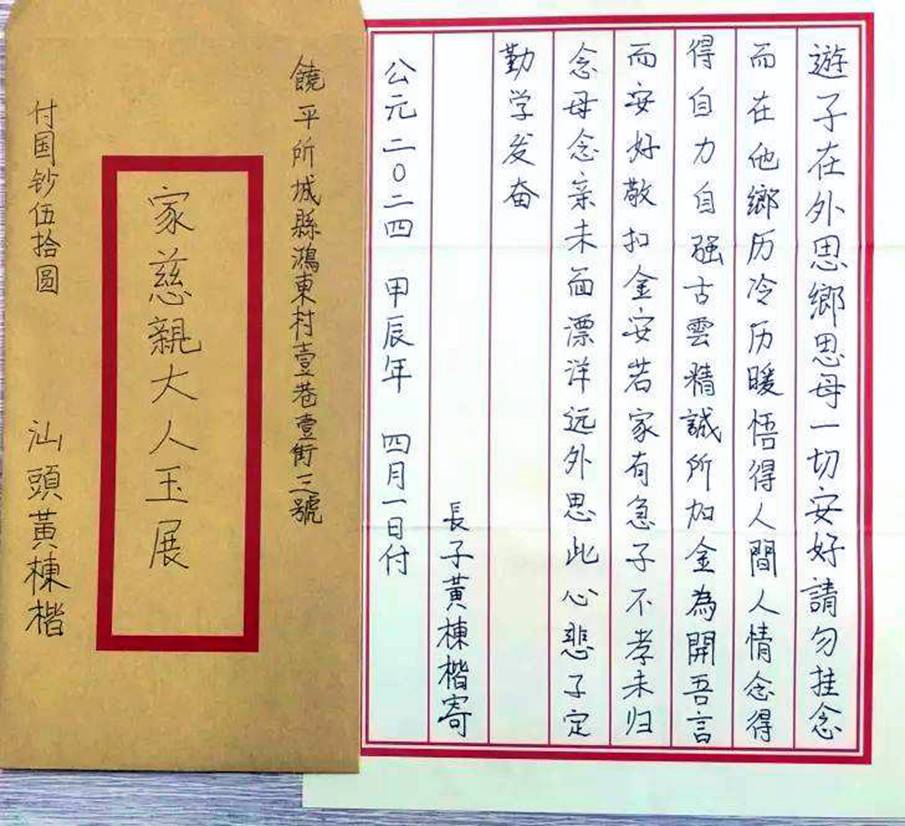 遊子在外思鄉思母一切安好請勿挂念
而在他鄉历冷历暖悟得人間人情念得
得自力自强古雲精誠所加金為開吾言
而安好敬扣金安若家有急子不孝未归
念母念亲未面漂洋远外思此心悲子定
勤学发奋
長子黃棟楷寄
公元二〇二四 甲辰年 四月一日付
饒平所城縣鴻東村壹巷壹街三號
家慈親大人玉展
付国钞伍拾圆
汕頭黃棟楷